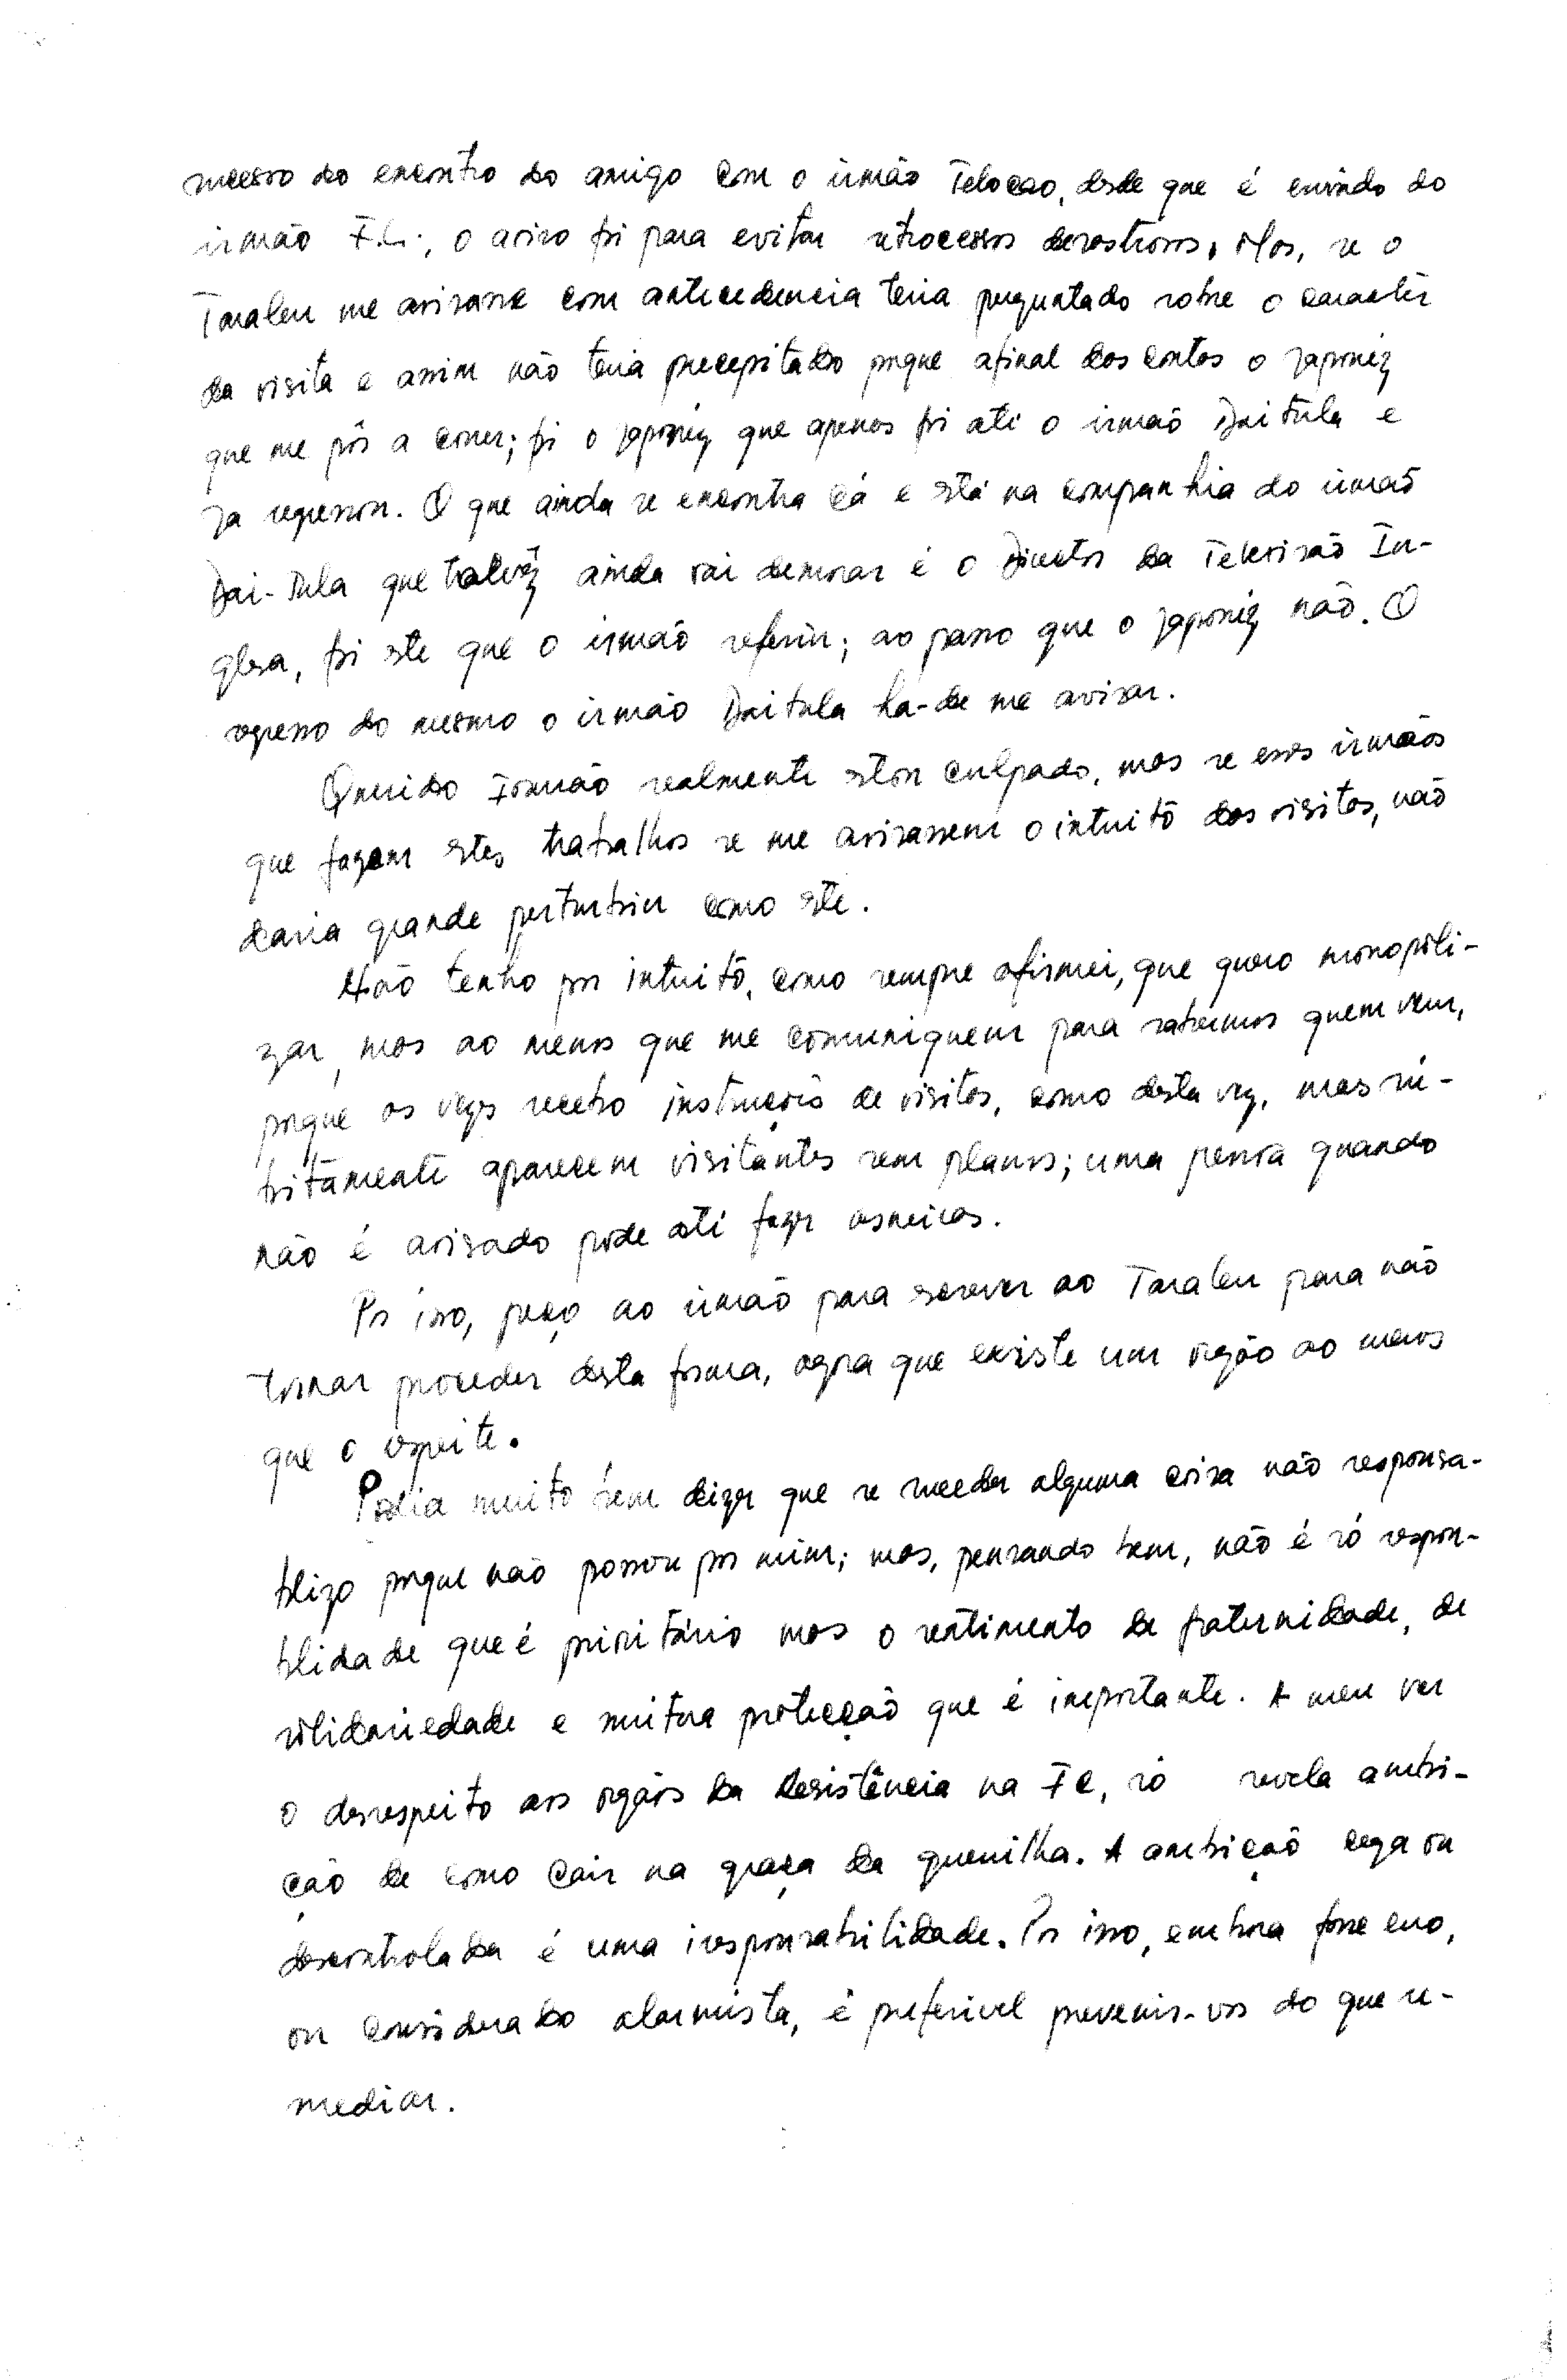 sucesso do encontro do amigo com o irmão Telocao, desde que é enviado do
irmão F.C.; o aviso foi para evitar retrocessos desastrosos. Mas, se o
Taraleu me avisasse com antecedencia teria perguntado sobre o caracter
da visita e assim não teria precepitado porque afinal das contas o japonêz
que me pôs a correr; foi o japonêz que apenas foi até o irmão Daitula e
ja regressou. O que ainda se encontra cá e está na companhia do irmão
Dai-Tula que talvêz ainda vai demorar é o Director da Televisão In-
glesa, foi este que o irmão referiu; ao passo que o japonêz não. O
regresso do mesmo o irmão Daitula ha-de me avisar.
Querido Irmão realmente estou culpado, mas se esses irmãos
que fazem estes trabalhos se me avisassem o intuito das visitas, não
daria grande perturbiu como este.
Não tenho por intuito, como sempre afirmei, que quero monopoli-
zar, mas ao menos que me comuniquem para sabermos quem vem,
porque as vezes recebo instrucções de visitas, como desta vez, mas sú-
bitamente aparecem visitantes sem planos; uma pessoa quando
não é avisado pode até fazer asneiras.
Por isso, peço ao irmão para escrever ao Taraleu para não
tornar proceder desta forma, agora que existe um orgão ao menos
que o respeite.
Podia muito bem dizer que se suceder alguma coisa não responsa-
blizo porque não passou por mim; mas, pensando bem, não é só respon-
blidade que é prioritário mas o sentimento de fraternidade, de
solidariedade e muitua protecção que é importante. A meu ver
o desrespeito aos orgãos da Resistência na FC, só revela ambi-
ção de como cair na graça da guerrilha. A ambição cega ou
descontrolada é uma iresponsabilidade. Por isso, embora fosse erro,
ou considerado alarmista, é preferivel prevenir-vos do que re-
mediar.